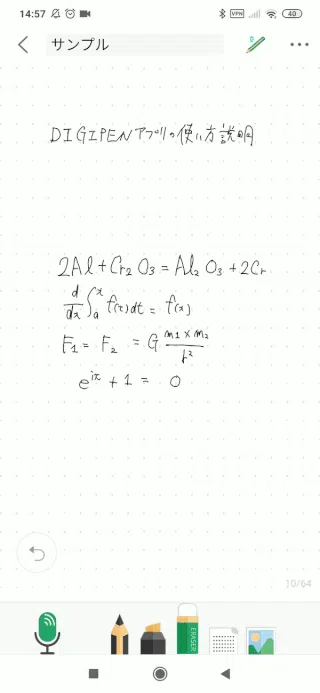 14:57 VPN 40
サンプル
DIGIPENアプリの使い方説明
2Al+Cr₂O₃=Al₂O₃+2Cr
d/dx ∫ₐˣ f(t)dt = f(x)
F₁ = F₂ = G m₁×m₂/r²
e^ix + 1 = 0
10/64
ERASER